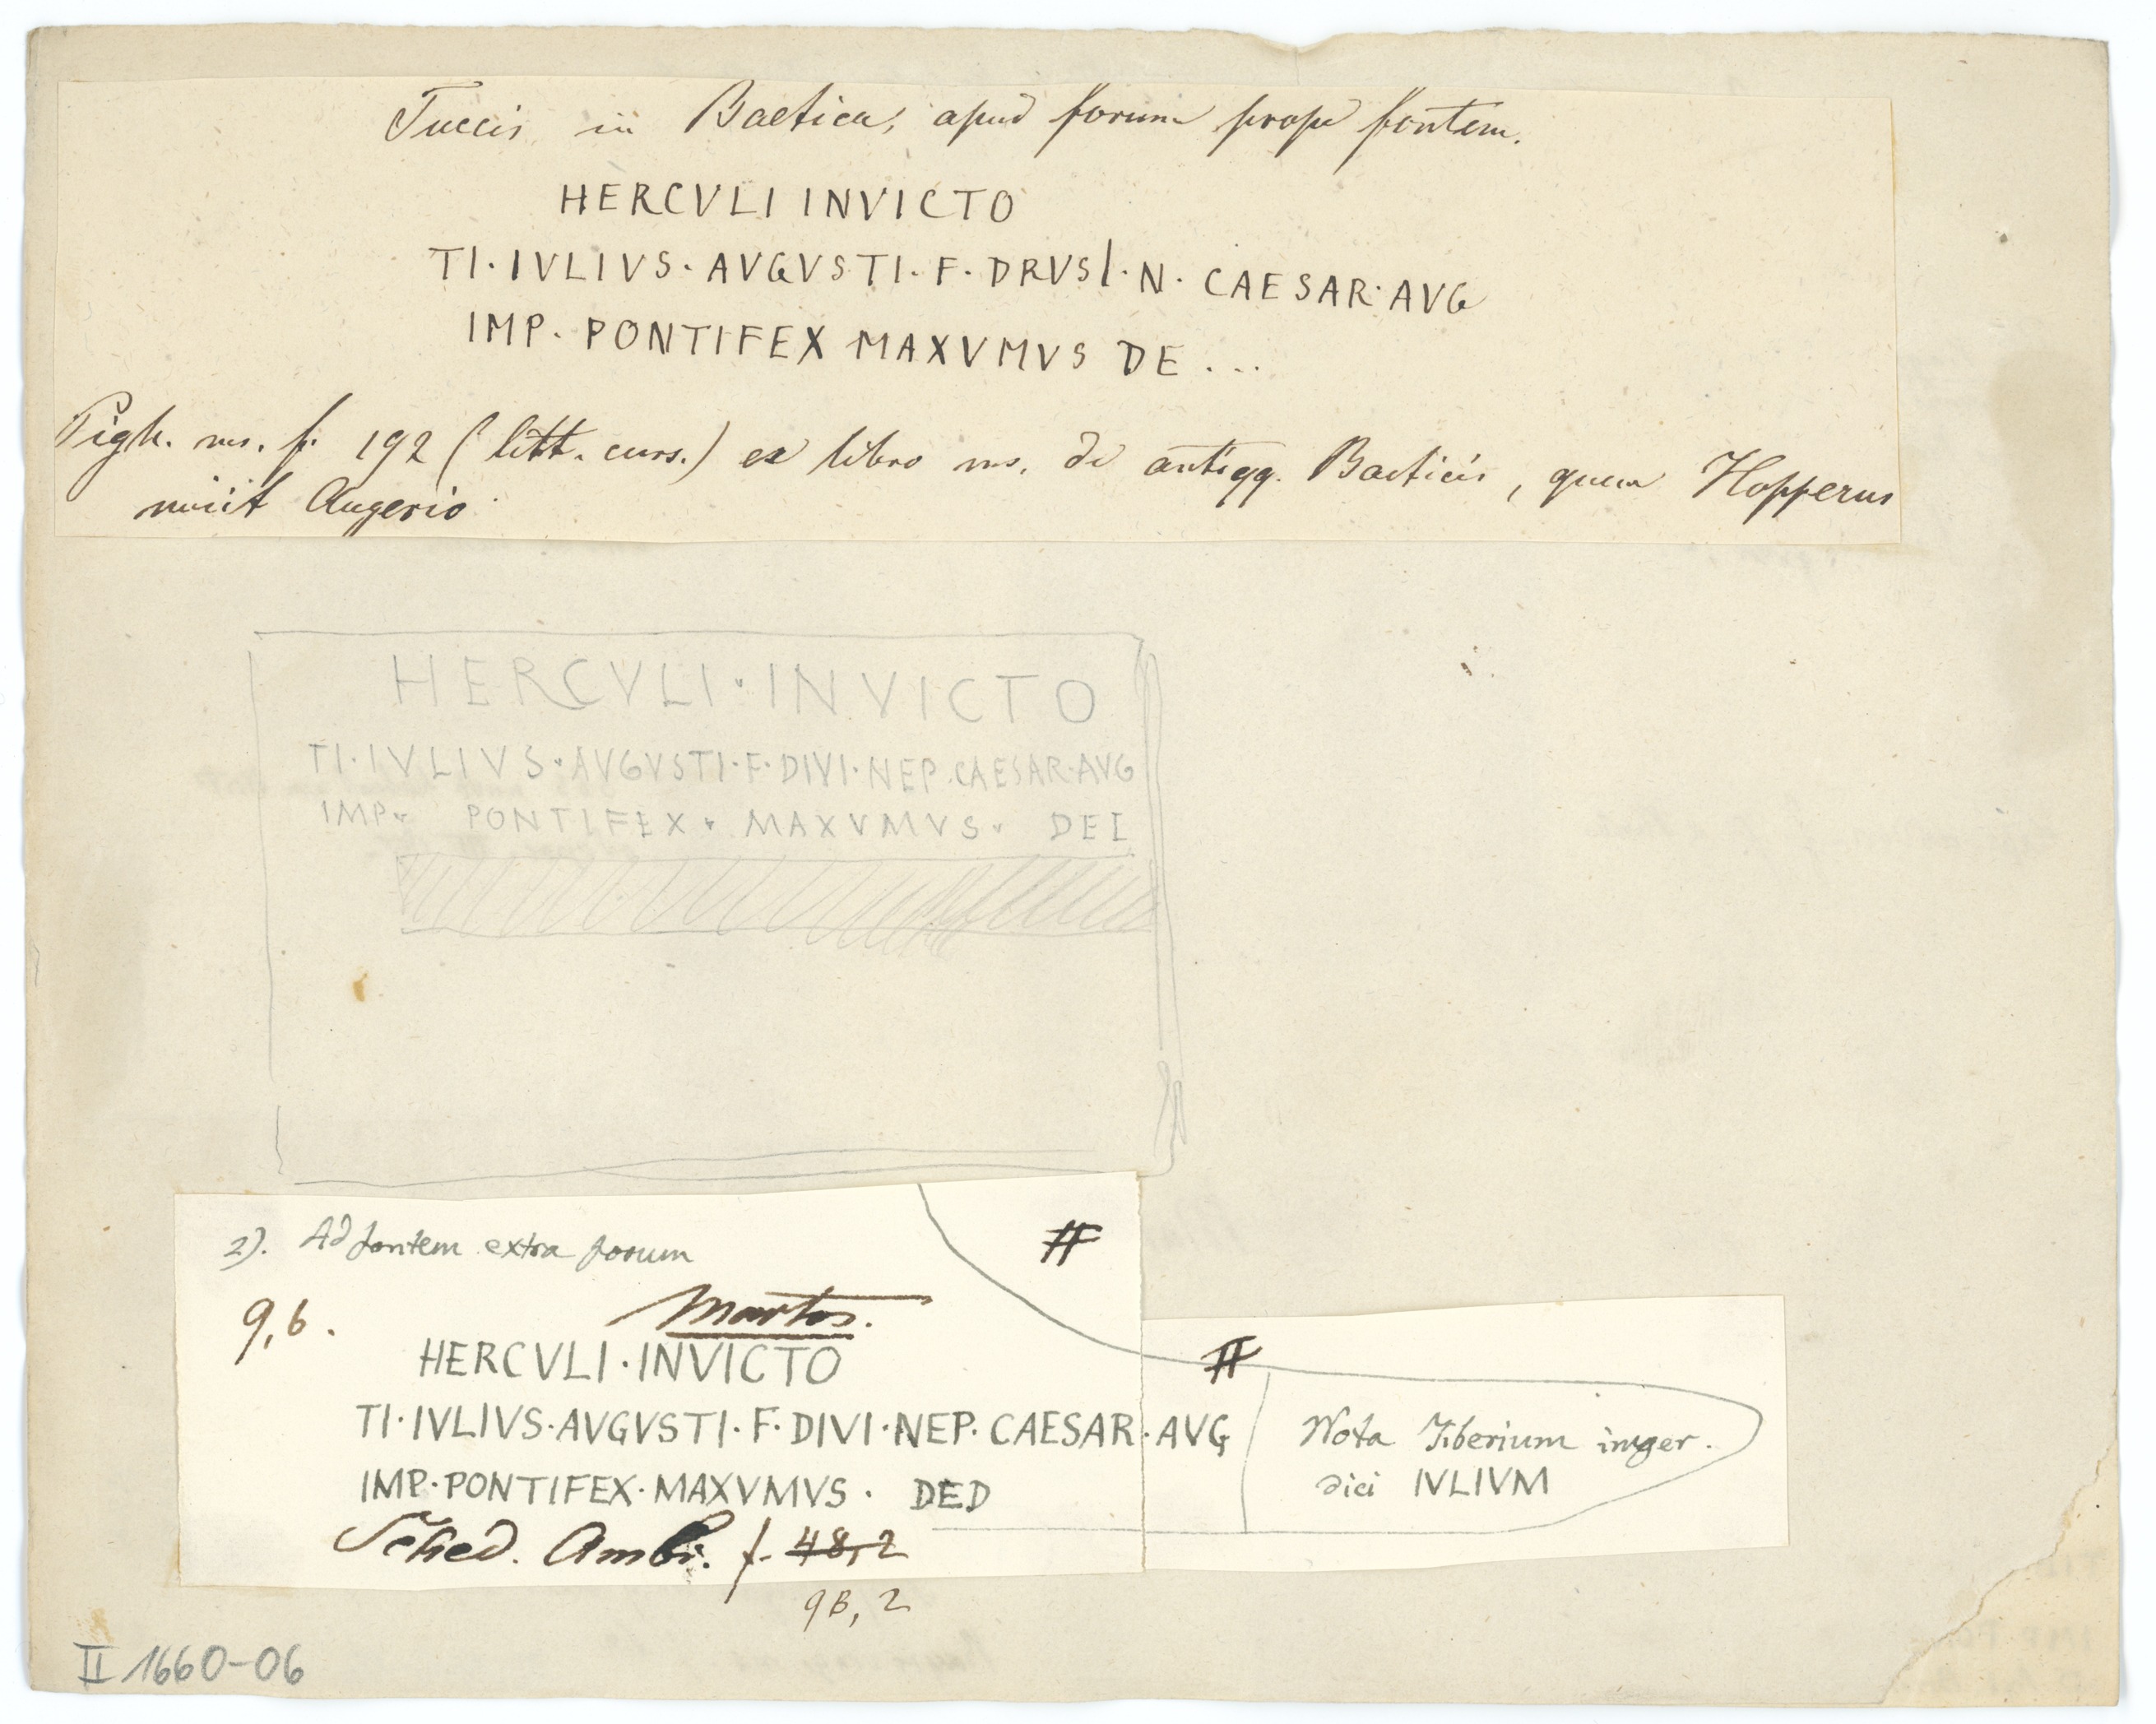 Tuccis in Baetica, apud forum prope fontem.
HERCVLI INVICTO
TI · IVLIVS · AVGVSTI · F · DRVSI · N · CAESAR · AVG
IMP · PONTIFEX MAXVMVS DE . . .
Pigh. ms. f. 192 (litt. curs.) ex libro ms. de antiqq. Baeticis, quem Hopperus
misit Augerio
HERCVLI · INVICTO
TI · IVLIVS · AVGVSTI · F · DIVI · NEP · CAESAR · AVG
IMP · PONTIFEX · MAXVMVS · DEI
2). Ad fontem extra forum
#
9,6.
Martos.
HERCVLI · INVICTO
#
TI · IVLIVS · AVGVSTI · F · DIVI · NEP · CAESAR · AVG
Nota Tiberium imper.
IMP · PONTIFEX · MAXVMVS · DED
dici IVLIVM
Sched. Ambr. f. 48,2
9B, 2
II 1660-06